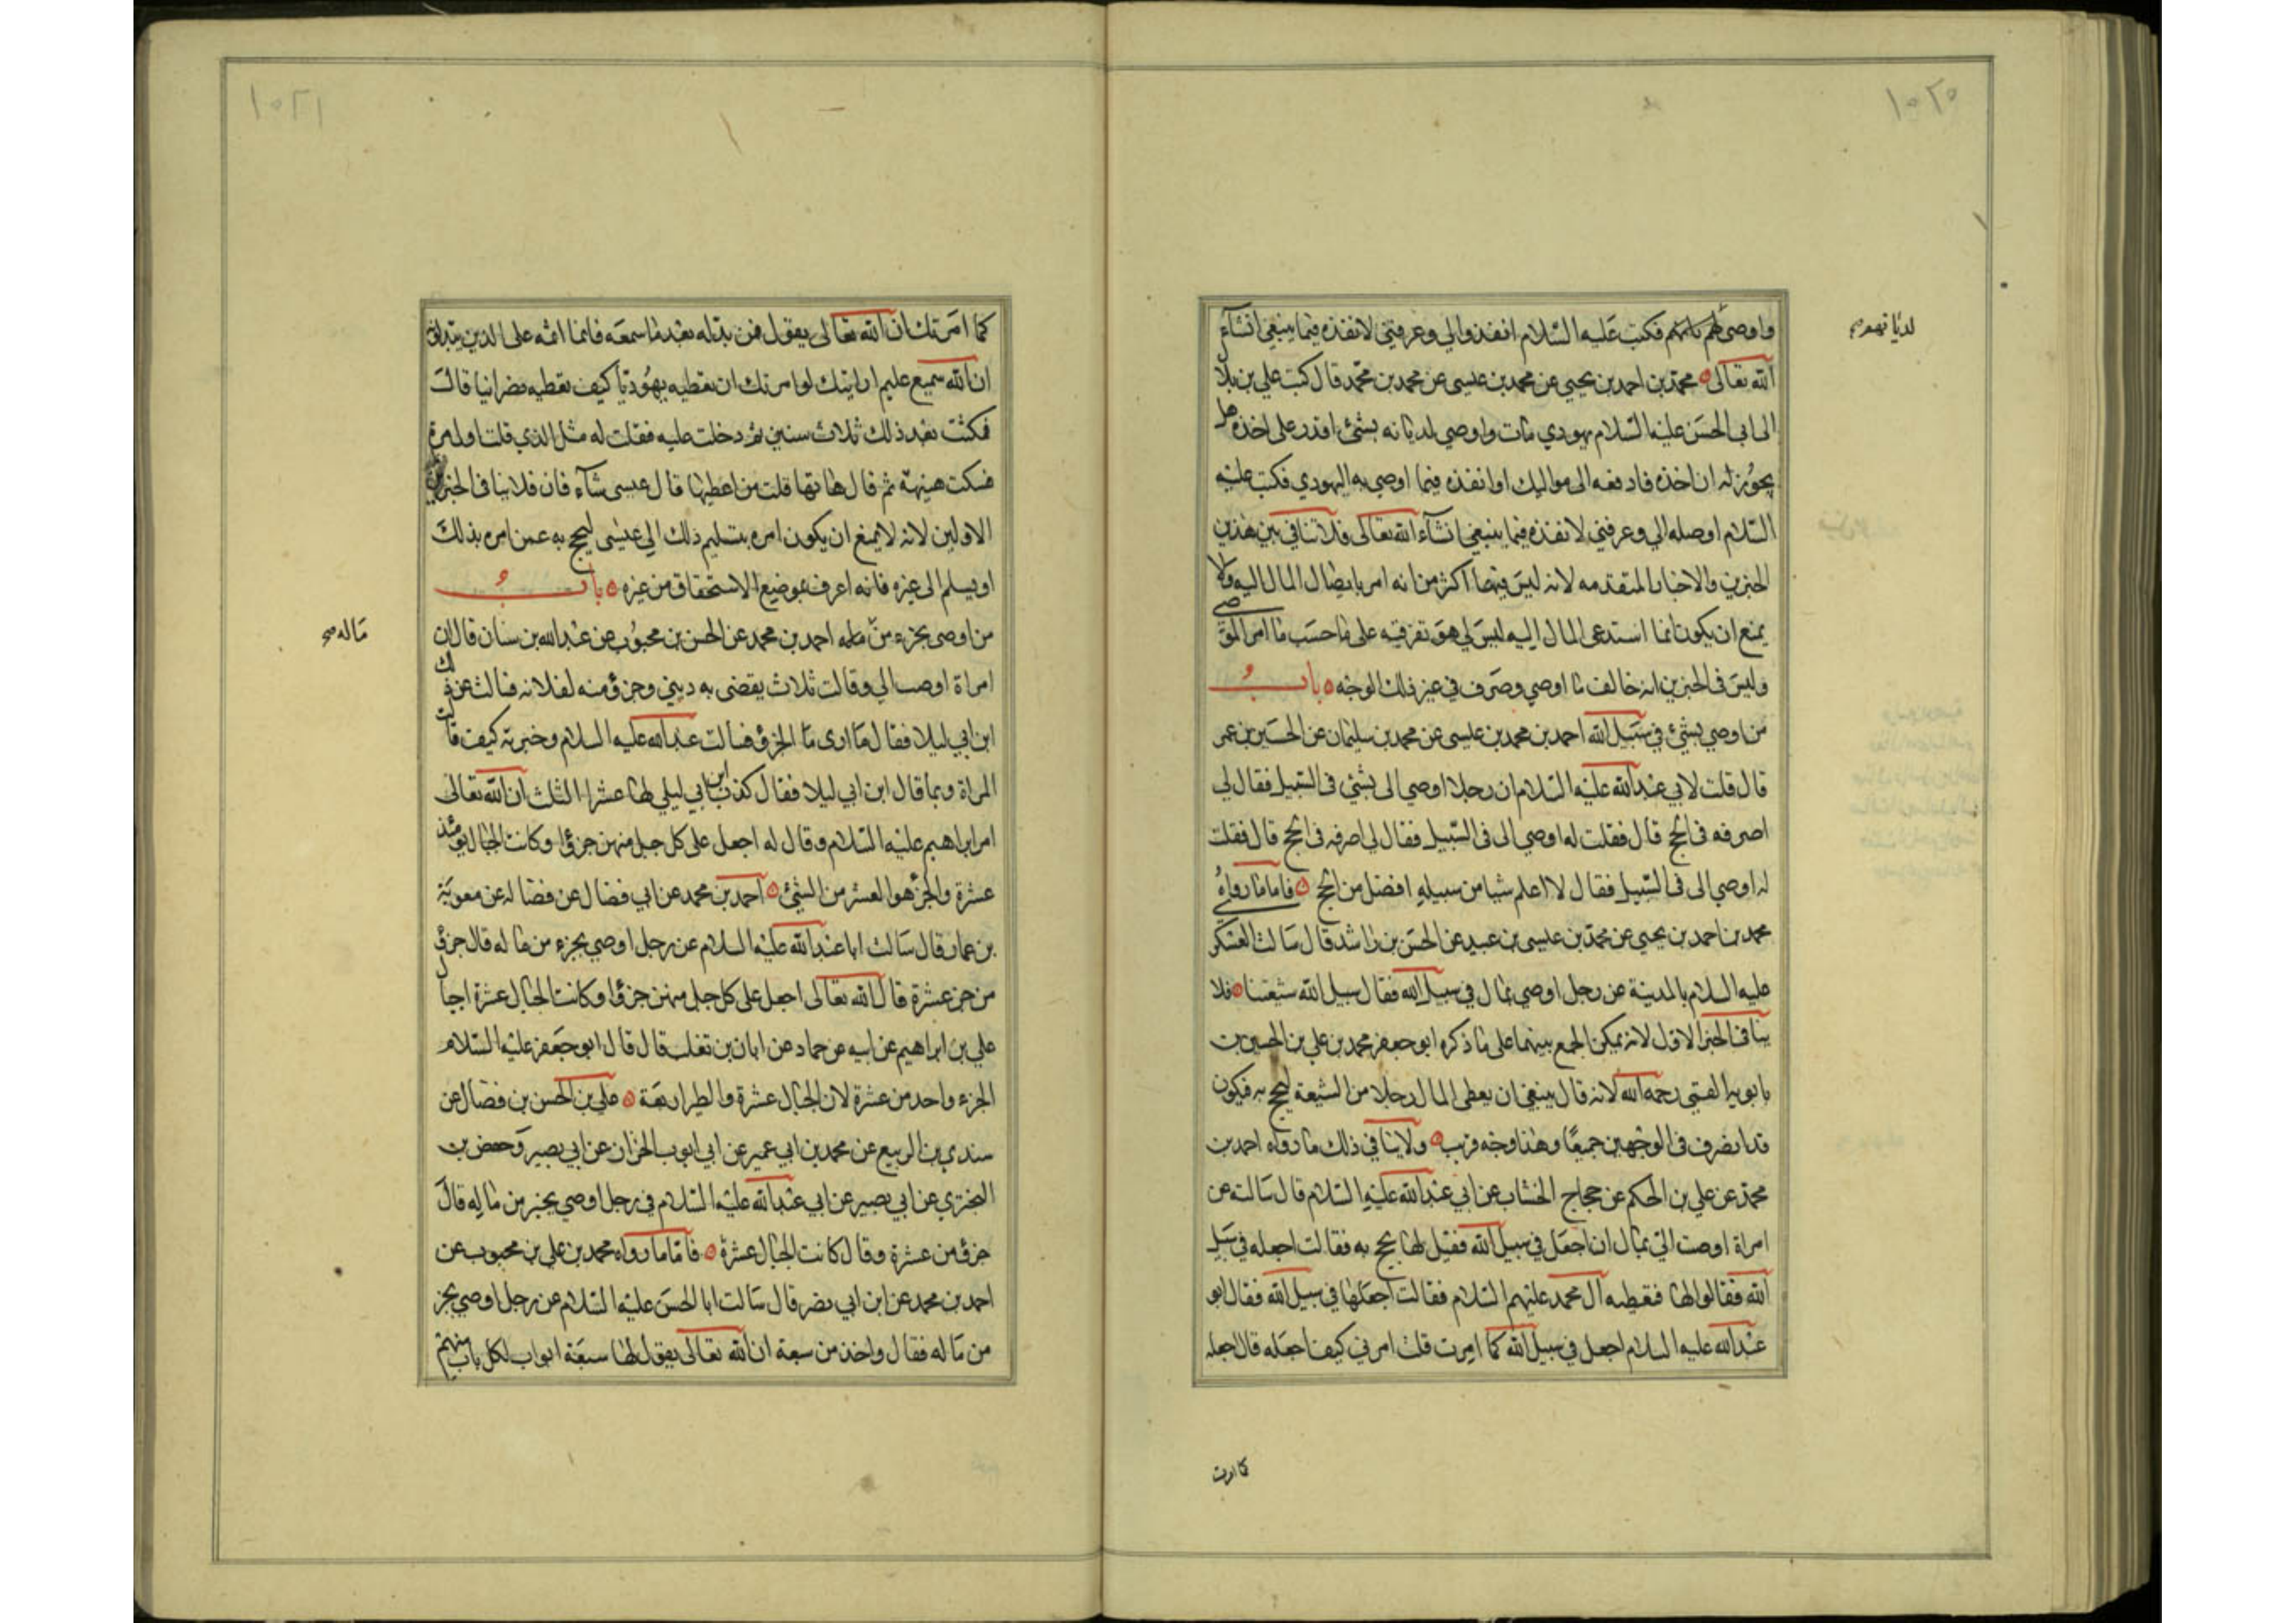 ١٠٢٥
واوصى لهم فكتب عليه السلام انفذ والي وعرفني لانفذه فيما ينبغي انشآء
لديانهم
الله تعالى محمد بن احمد بن يحيى عن محمد بن عيسى عن محمد بن محمد قال كتب علي بن بلال
الى ابي الحسن عليه السلام يهودي مات واوصي لديانه بشئ اقدر على اخذه هل
يجوز له ان اخذه فادفعه الى مواليك اوانفذه فيما اوصي به اليهودي فكتب عليه
السلام اوصله الي وعرفني لانفذه فيما ينبغي انشآء الله تعالى فلا تنافي بين هذين
الخبرين والاخبار المتقدمه لانه ليس فيها اكثر من انه امر بايصال المال اليه ولا
يمنع ان يكون انما استدعى المال اليه ليتولى هو تفرقته على ما حسب ما امر الموصي
وليس في الخبرين انه خالف ما اوصي وصرف في غير ذلك الوجه باب
من اوصي بشئ في سبيل الله احمد بن محمد بن عيسى عن محمد بن سليمان عن الحسين بن عمر
قال قلت لابي عبد الله عليه السلام ان رجلا اوصي الى بشئ في السبيل فقال لي
اصرفه في الحج قال فقلت له اوصي الى في السبيل فقال لي اصرفه في الحج قال فقلت
له اوصي الى في السبيل فقال لا اعلم شيا من سبيله افضل من الحج فاما ما رواه
محمد بن احمد بن يحيى عن محمد بن عيسى بن عبيد عن الحسن بن راشد قال سالت العسكري
عليه السلام بالمدينة عن رجل اوصي بمال في سبيل الله فقال سبيل الله شيعتنا فلا
ينافي الخبر الاول لانه يمكن الجمع بينهما على ما ذكره ابو جعفر محمد بن علي بن الحسين بن
بابويه القمي رحمه الله لانه قال ينبغي ان يعطى المال رجلا من الشيعة ليحج به فيكون
قد انصرف في الوجهين جميعا وهذا وجه قريب ولا ينافي ذلك ما رواه احمد بن
محمد عن علي بن الحكم عن حجاج الخشاب عن ابي عبد الله عليه السلام قال سالته عن
امراة اوصت الي بمال ان اجعل في سبيل الله فقيل لها يحج به فقالت اجعله في سبيل
الله فقالوا لها فنعطيه آل محمد عليهم السلام فقالت اجعلها في سبيل الله فقال ابو
عبد الله عليه السلام اجعل في سبيل الله كما امرت قلت امرني كيف اجعله قال اجعله
كما امرت
١٠٢٦
كما امرتك ان الله تعالى يقول فمن بدله بعد ما سمعه فانما اثمه على الذين يبدلونه
ان الله سميع عليم ارايتك لو امرتك ان تعطيه يهوديا كيف تعطيه نصرانيا قال
فمكثت بعد ذلك ثلاث سنين ثم دخلت عليه فقلت له مثل الذي قلت اول مرة
فسكت هنيهة ثم قال هاتها قلت من اعطيها قال عيسى شآء فان فلا ينافي الخبرين
الاولين لانه لا يمنع ان يكون امره بتسليم ذلك الى عيسى ليحج به عمن امره بذلك
او يسلم الى غيره فانه اعرف بموضع الاستحقاق من غيره باب
من اوصى بجزء من ماله احمد بن محمد عن الحسن بن محبوب عن عبد الله بن سنان قال ان
ماله صح
امراة اوصت الي وقالت ثلاث يقضى به ديني وجزؤ منه لفلانه فسالت عن ذلك
ابن ابي ليلا فقال ما ارى ما الجزؤ فسالت عبد الله عليه السلام وخبرته كيف قالت
المراة وبما قال ابن ابي ليلا فقال كذب ابن ابي ليلى لها عشر الثلث ان الله تعالى
امر ابراهيم عليه السلام وقال له اجعل على كل جبل منهن جزؤا وكانت الجبال يومئذ
عشرة والجزؤ هو العشر من الشئ احمد بن محمد عن ابي فضال عن فضاله عن معوية
بن عمار قال سالت ابا عبد الله عليه السلام عن رجل اوصي بجزء من ماله قال جزؤ
من عشرة قال الله تعالى اجعل على كل جبل منهن جزؤا وكانت الجبال عشرة اجبال
علي بن ابراهيم عن ابيه عن حماد عن ابان بن تغلب قال قال ابو جعفر عليه السلام
الجزء واحد من عشرة لان الجبال عشرة والطير اربعة علي بن الحسن بن فضال عن
سندي بن الربيع عن محمد بن ابي عمير عن ابي ايوب الخزاز عن ابي بصير وحفص بن
البختري عن ابي بصير عن ابي عبد الله عليه السلام في رجل اوصي بجزء من ماله قال
جزؤ من عشرة وقال كانت الجبال عشرة فاما ما رواه محمد بن علي بن محبوب عن
احمد بن محمد عن ابن ابي نصر قال سالت ابا الحسن عليه السلام عن رجل اوصي بجزء
من ماله فقال واحد من سبعة ان الله تعالى يقول لها سبعة ابواب لكل باب منهم